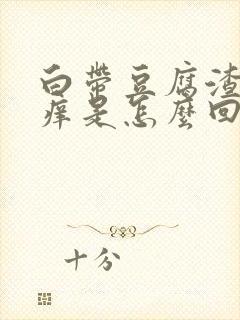 白带豆腐渣
痒是怎麽回
十分